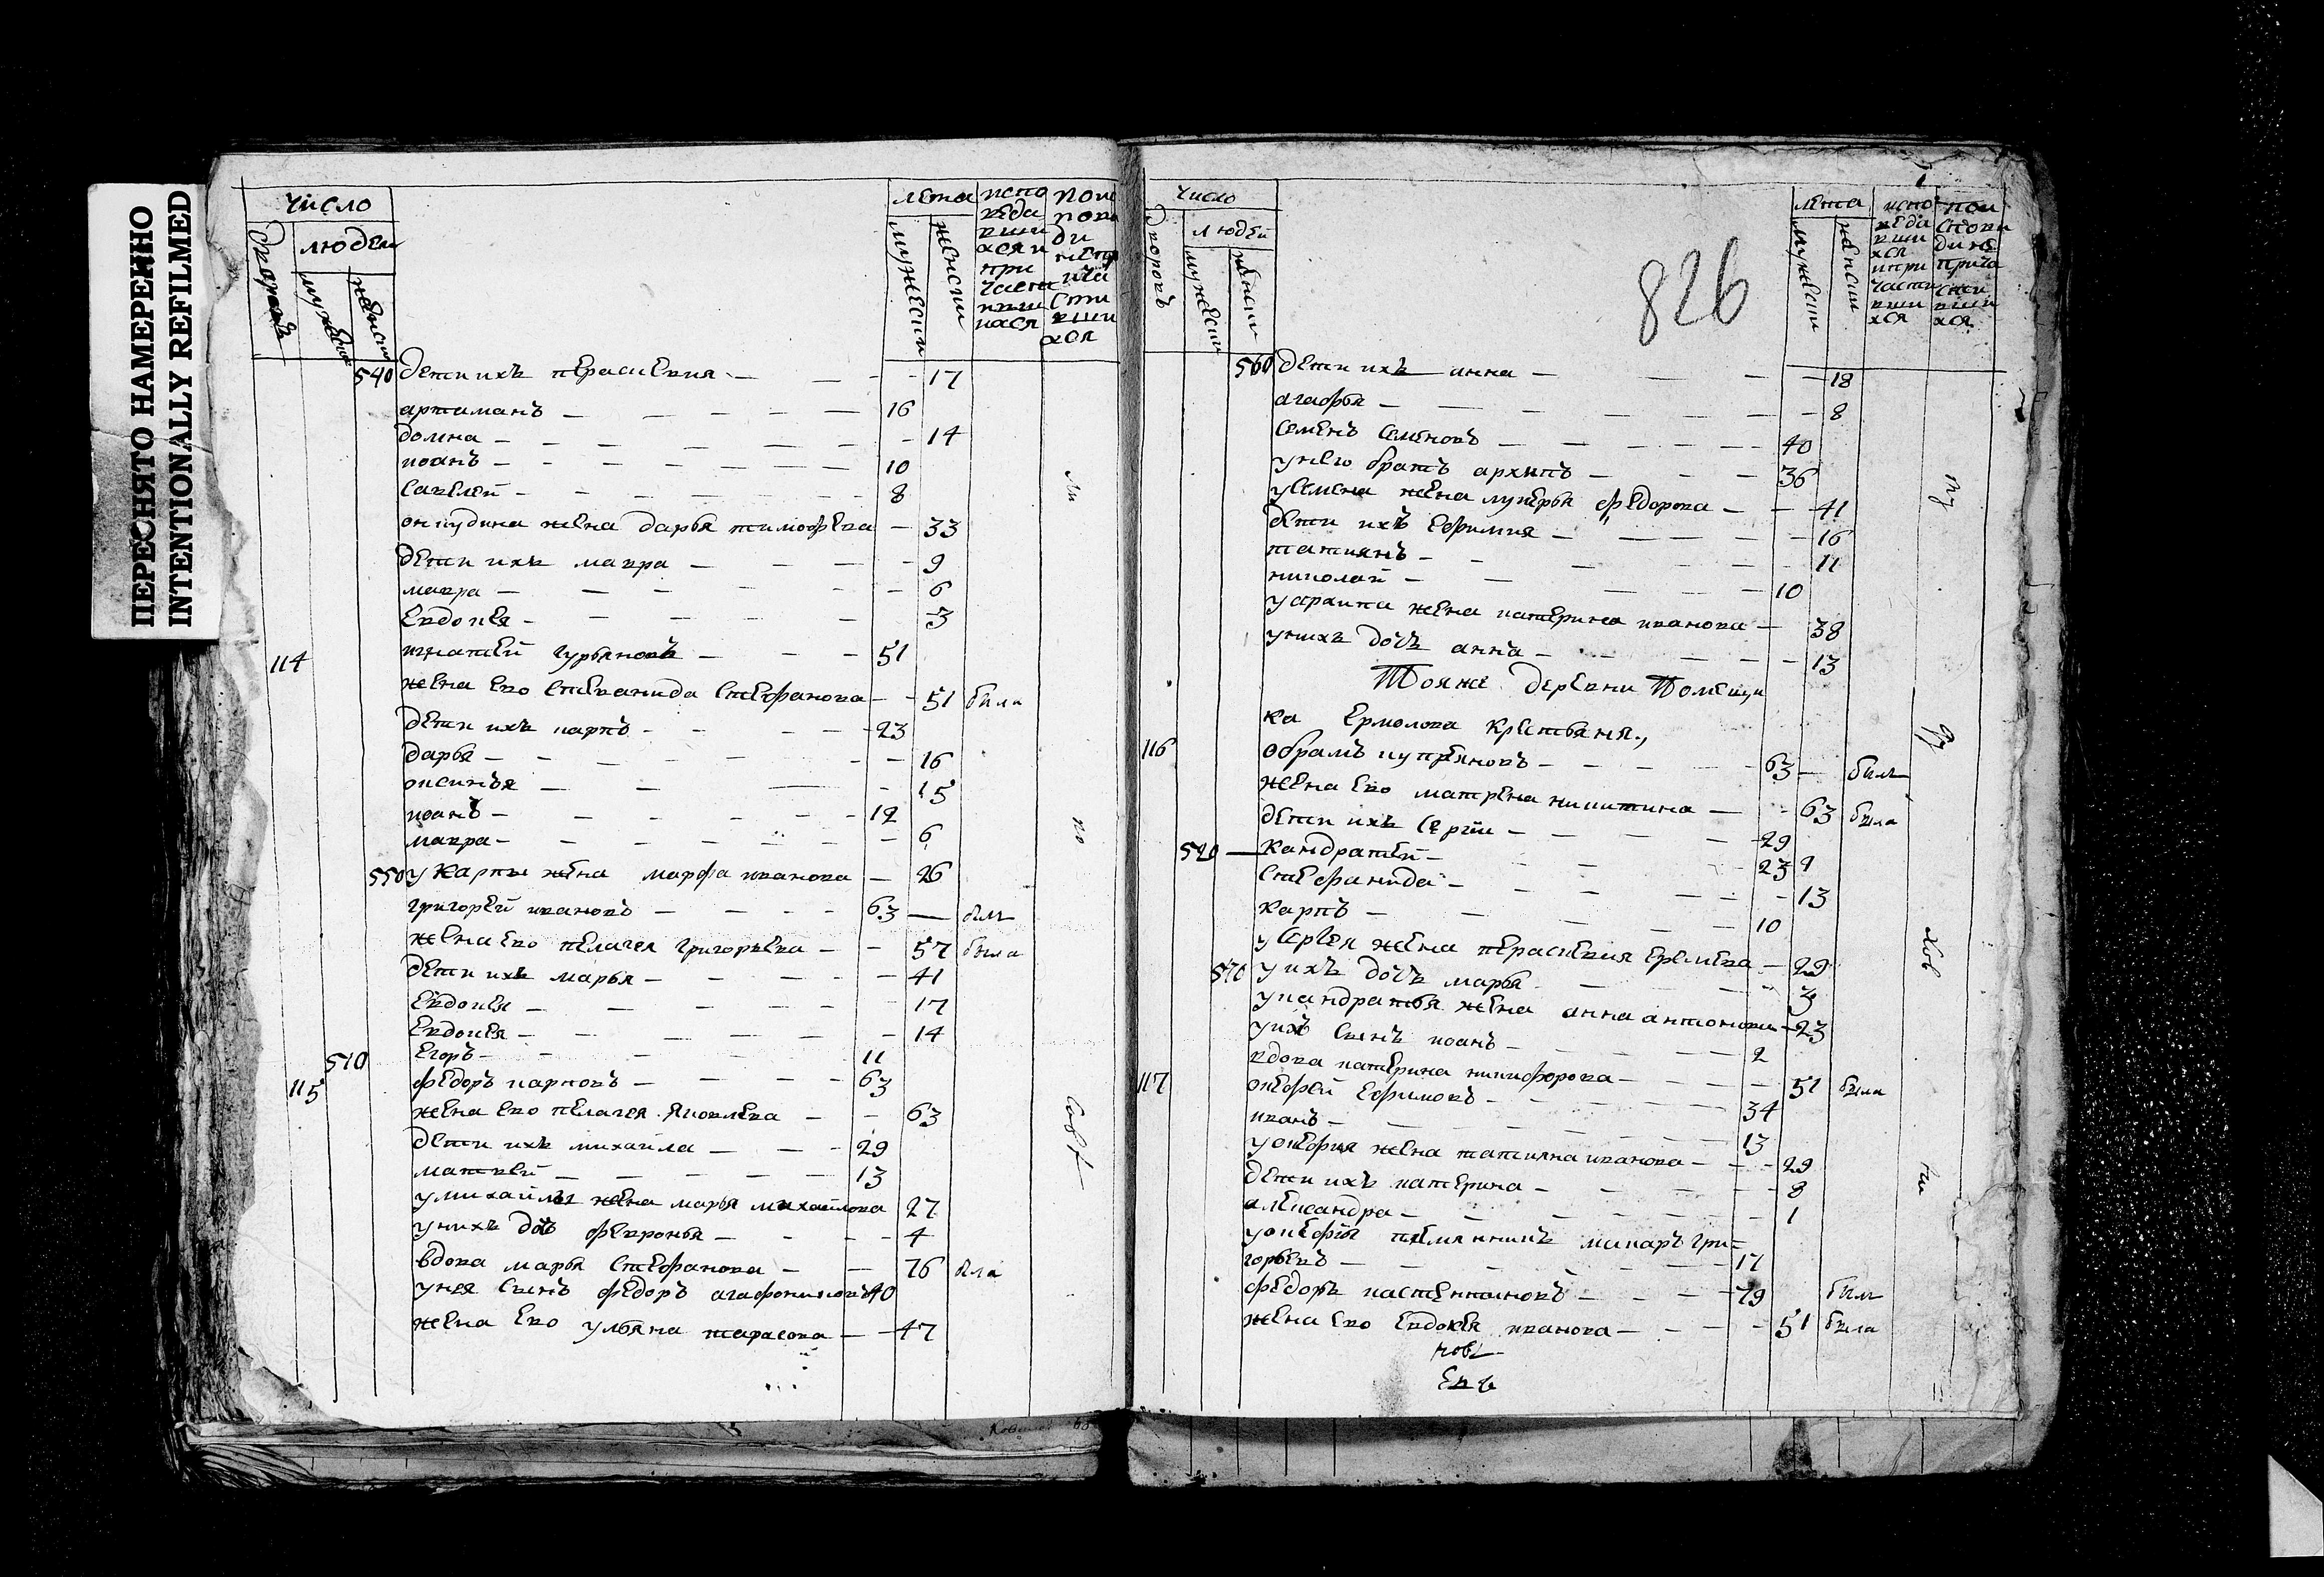 ПЕРЕСНЯТО НАМЕРЕННО
INTENTIONALLY REFILMED
число
дворовъ
людей
мужеска
женска
лета
мужески
женски
испо
веда
вши
хся и
при
части
вши
хася
540 дети ихъ параскевия 17
артаманъ 16
домна 14
иоанъ 10
савелей 8
онкудина жена дарья тимофева 33
дети ихъ мавра 9
мавра 6
евдокея 3
114 игнатей гурьяновъ 51
жена ево степанида стефанова 51 была
дети ихъ карпъ 23
дарья 16
оксинья 15
иоанъ 12
мавра 6
550 у карпы жена марфа иванова 26
григорей ивановъ 63 былъ
жена ево пелагея григорьева 57 была
дети ихъ марья 41
евдокея 17
евдокея 14
510 егоръ 11
115 федоръ карповъ 63
жена ево пелагея яковлева 63
дети ихъ михаила 29
матвей 13
у михайлы жена марья михаилова 27
у нихъ дочь февронья 4
вдова марья стефанова 76 была
у нея сынъ федоръ агафоновъ 40
жена ево ульяна тарасова 47
ли
по
число
дворовъ
людей
мужески
женски
лета
мужески
женски
испо
веда
вши
хся
и при
части
вши
хся
826
560 дети ихъ анна 18
агафья 8
семенъ семеновъ 40
у нево братъ архипъ 36
у семена жена лукерья федорова 41
дети ихъ ефимия 16
татиянъ 11
николай 10
у архипа жена катерина иванова 38
у нихъ дочь анна 13
Тояже деревни помещи
ка Ермолова крестьяня
116 обрамъ купреяновъ 63 былъ
жена ево матрена никитина 63 была
дети ихъ сергии 29
520 кандратей 23
стефанида 13
карпъ 10
у сергея жена параскевия еремева 29
570 у ихъ дочь марья 3
у кандратья жена анна антонова 23
у ихъ сынъ иоанъ 2
вдова катерина никифорова 51 была
117 окефей ефимовъ 34
иванъ 13
у окефия жена татияна иванова 29
дети ихъ катерина 8
александра 1
у окефья племянникъ макаръ гри=
горьевъ 17
федоръ костентиновъ 79 былъ
жена ево евдокея иванова 51 была